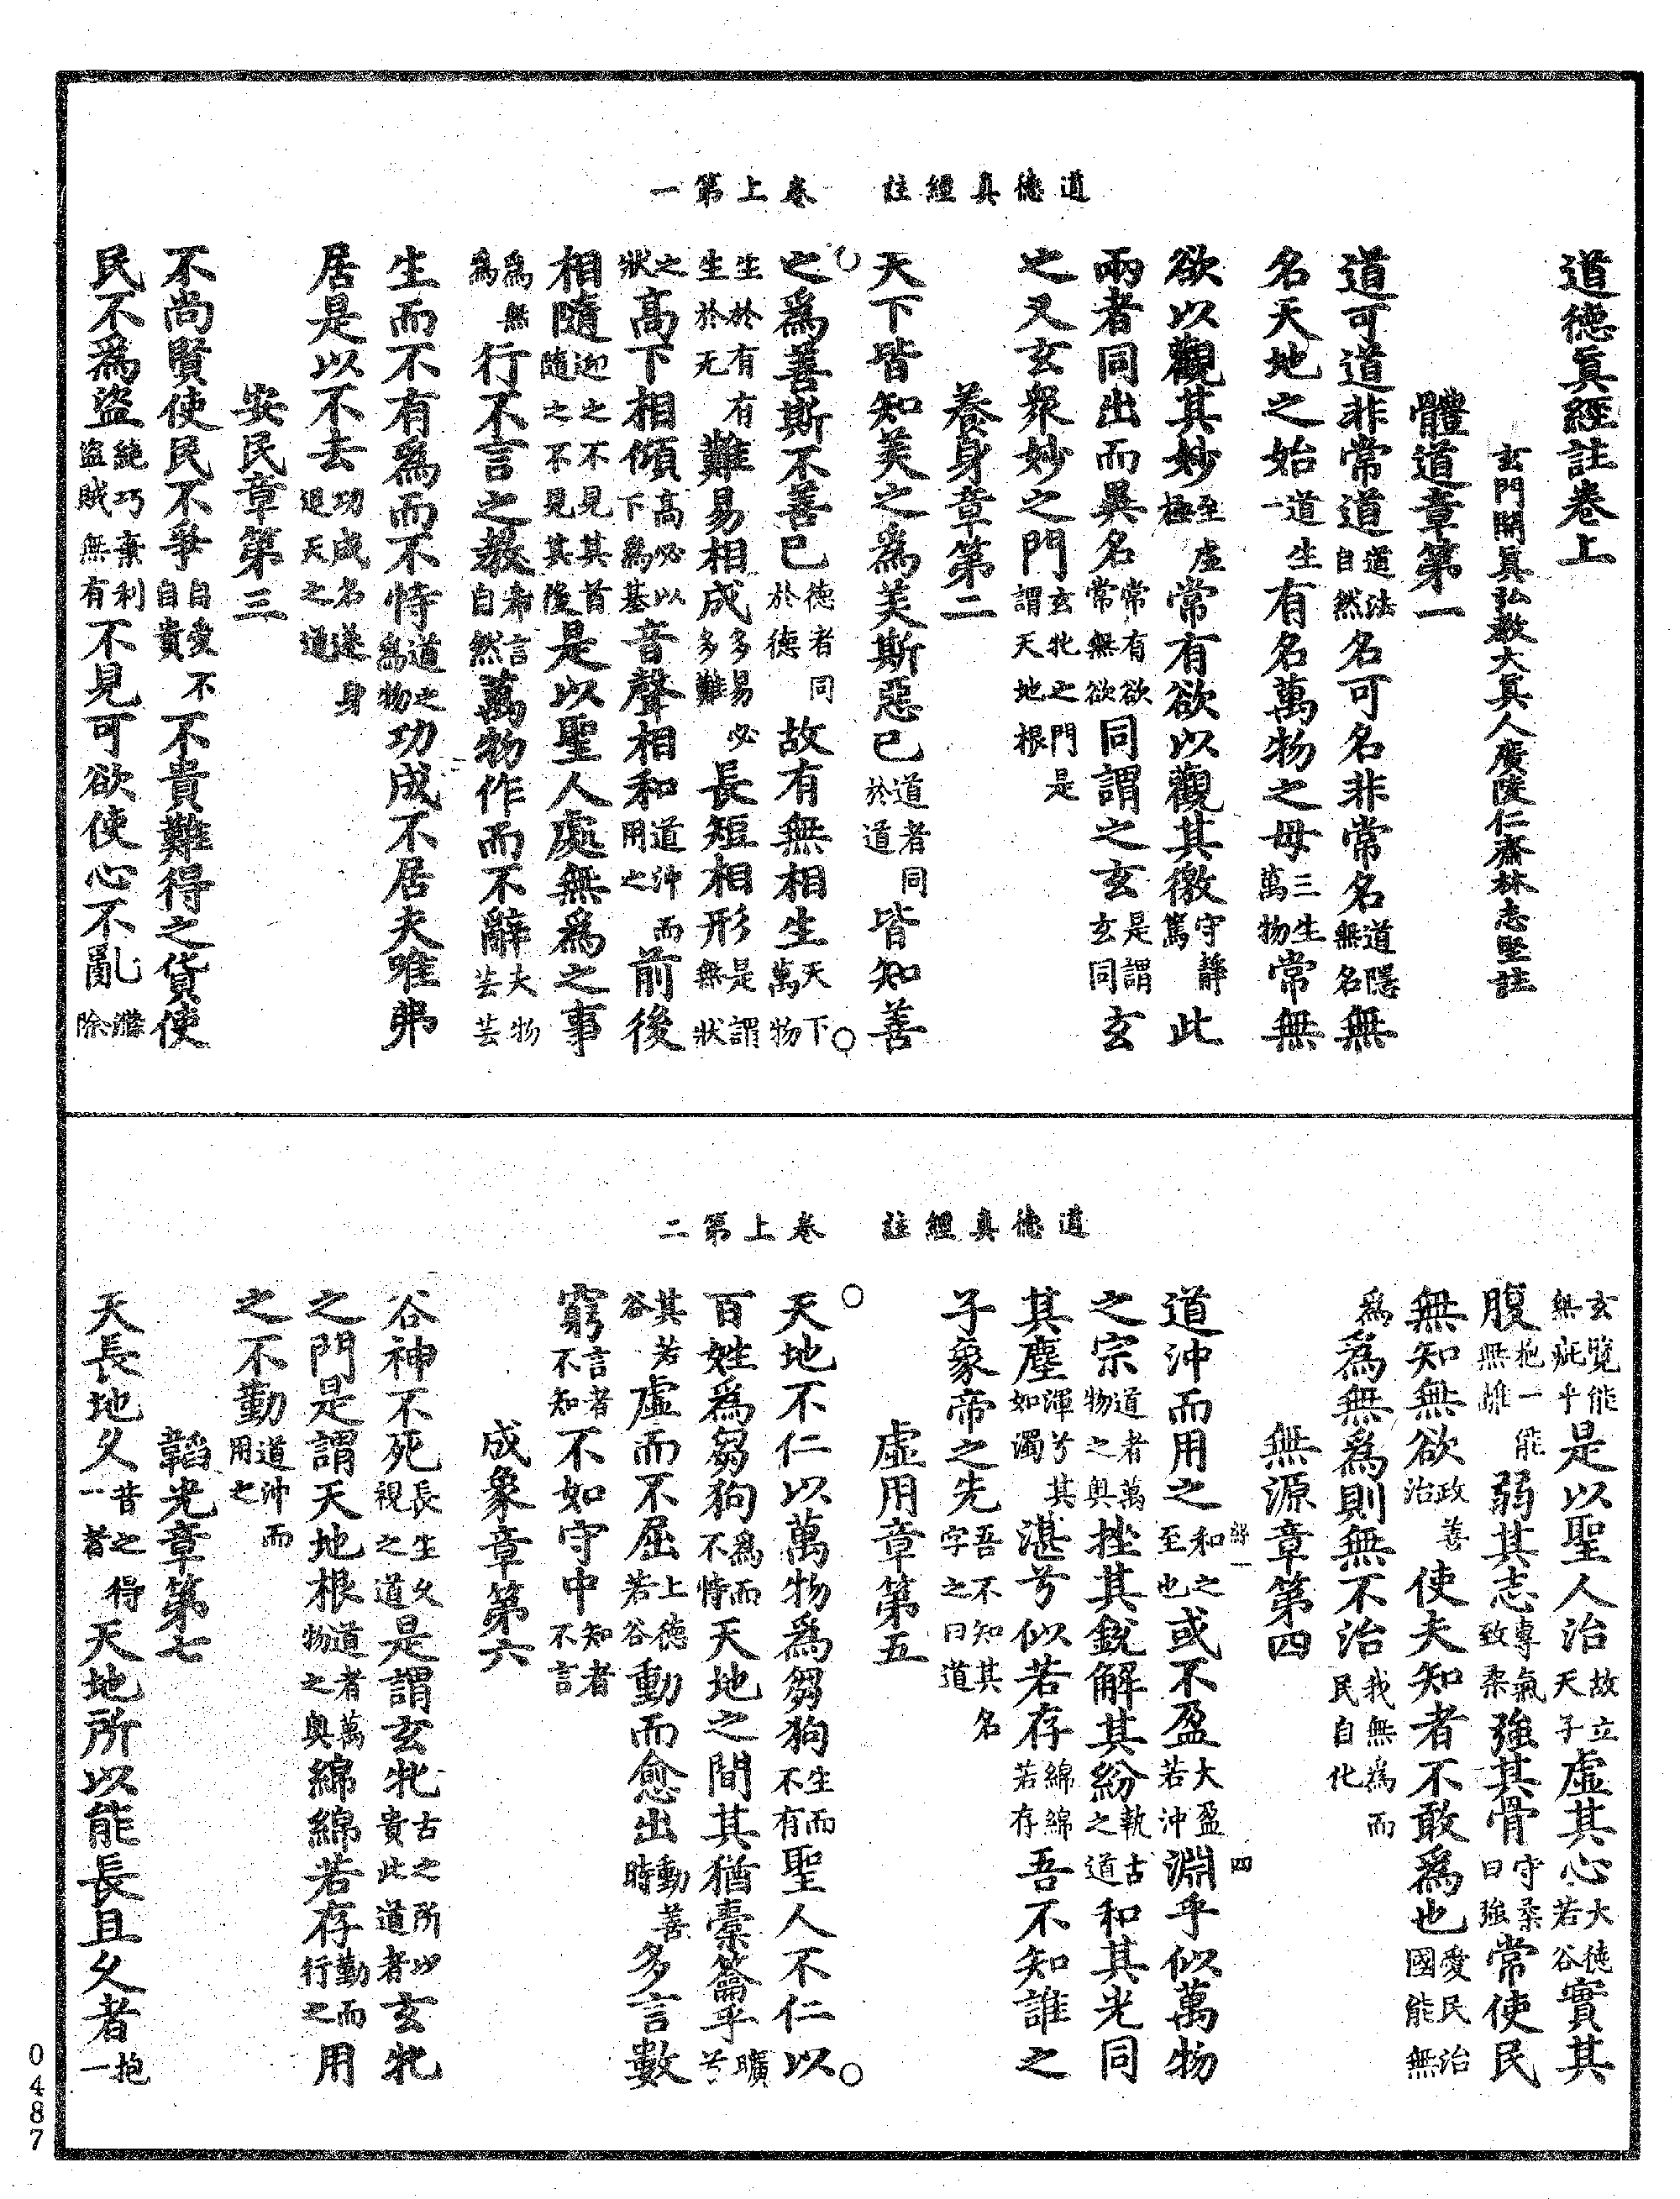 道德真經註　卷上第一
道德真經註卷上
玄門開真弘教大真人廣陵仁齋林志堅註
體道章第一
道可道非常道道法自然名可名非常名道隱無名無
名天地之始道生一有名萬物之母三生萬物常無
欲以觀其妙至虛極常有欲以觀其徼守靜篤此
兩者同出而異名常有欲常無欲同謂之玄是謂玄同玄
之又玄衆妙之門玄牝之門是謂天地根
養身章第二
天下皆知美之爲美斯惡已道者同於道皆知善
之爲善斯不善已德者同於德故有無相生天下萬物
生於有有生於无難易相成多易必多難長短相形是謂無狀
之狀高下相傾高必以下爲基音聲相和道沖而用之前後
相隨迎之不見其首隨之不見其後是以聖人處無爲之事
爲無爲行不言之教希言自然萬物作而不辭夫物芸芸
生而不有爲而不恃道之爲物功成不居夫唯弗
居是以不去功成名遂身退天之道
安民章第三
不尚賢使民不爭自愛不自貴不貴難得之貨使
民不爲盜絕巧棄利盜賊無有不見可欲使心不亂滌除
道德真經註　卷上第二
玄覽能無疵乎是以聖人治故立天子虛其心大德若谷實其
腹抱一能無離弱其志專氣致柔強其骨守柔曰強常使民
無知無欲政善治使夫知者不敢爲也愛民治國能無
爲爲無爲則無不治我無爲而民自化
無源章第四
四
道沖而用之和之至也或不盈大盈若沖淵乎似萬物
之宗道者萬物之奧挫其銳解其紛執古之道和其光同
其塵渾兮其如濁湛兮似若存綿綿若存吾不知誰之
子象帝之先吾不知其名字之曰道
虛用章第五
天地不仁以萬物爲芻狗生而不有聖人不仁以
百姓爲芻狗爲而不恃天地之間其猶橐籥乎曠兮
其若谷虛而不屈上德若谷動而愈出動善時多言數
窮言者不知不如守中知者不言
成象章第六
谷神不死長生久視之道是謂玄牝古之所以貴此道者玄牝
之門是謂天地根道者萬物之奧綿綿若存勤而行之用
之不勤道沖而用之
韜光章第七
天長地久昔之得一者天地所以能長且久者抱一
0487